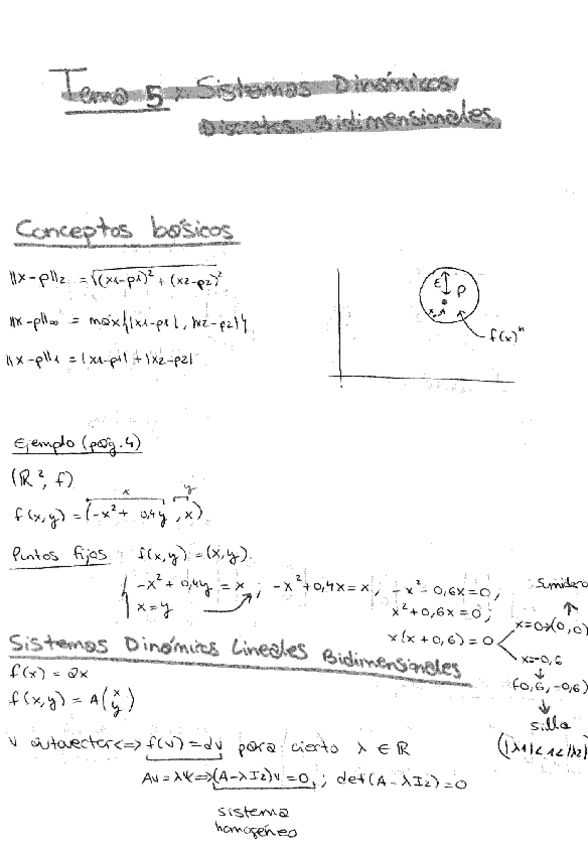 Tema 5: Sistemas Dinámicos
Discretos Bidimensionales
Conceptos básicos
||x-p||₂ = √((x1-p1)² + (x2-p2)²)
||x-p||∞ = max{|x1-p1|, |x2-p2|}
||x-p||₁ = |x1-p1| + |x2-p2|
ε p
f(x)ⁿ
Ejemplo (pág. 4)
(ℝ², f)
x y
f(x,y) = (-x² + 0,4y, x)
Puntos fijos: f(x,y) = (x,y)
-x² + 0,4y = x; -x² + 0,4x = x; -x² - 0,6x = 0;
x = y
x² + 0,6x = 0;
x(x + 0,6) = 0
Sumidero
(0,0)
x = -0,6
(-0,6, -0,6)
silla
(|λ1| < 1 < |λ2|)
Sistemas Dinámicos Lineales Bidimensionales
f(x) = ax
f(x,y) = A(x y)
v autovector <=> f(v) = λv para cierto λ ∈ ℝ
Av = λv <=> (A - λI₂)v = 0; det(A - λI₂) = 0
sistema
homogéneo